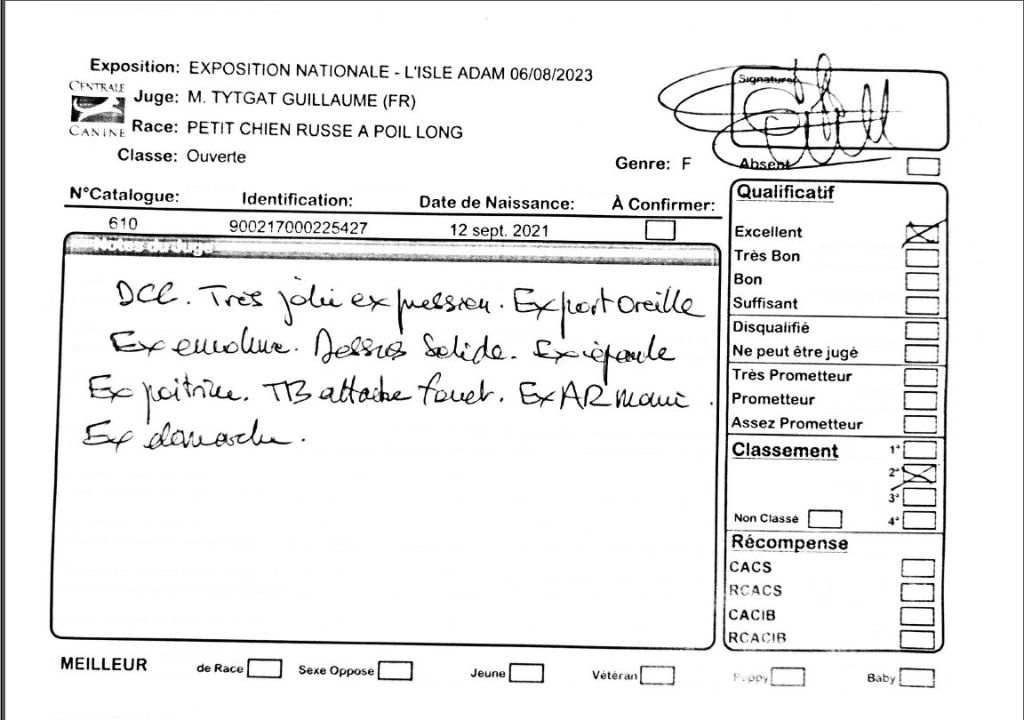 Exposition: EXPOSITION NATIONALE - L'ISLE ADAM 06/08/2023
CENTRALE
CANINE
Juge: M. TYTGAT GUILLAUME (FR)
Race: PETIT CHIEN RUSSE A POIL LONG
Classe: Ouverte
Genre: F
Signature
Absent
N°Catalogue: Identification: Date de Naissance: À Confirmer:
610 900217000225427 12 sept. 2021
Notes du Juge
DCC. Très jolie expression. Ex port oreille
Ex encolure. Dessus Solide. Ex épaule
Ex poitrine. TB attache fouet. Ex AR main .
Ex démarche.
Qualificatif
Excellent
Très Bon
Bon
Suffisant
Disqualifié
Ne peut être jugé
Très Prometteur
Prometteur
Assez Prometteur
Classement
1°
2°
3°
Non Classé 4°
Récompense
CACS
RCACS
CACIB
RCACIB
MEILLEUR de Race Sexe Opposé Jeune Vétéran Puppy Baby